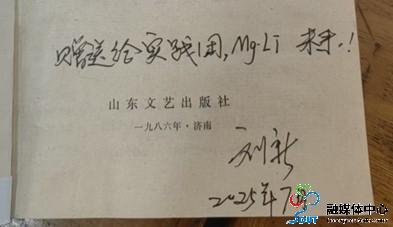 赠送给实践团,Mg-Li 未来!
山东文艺出版社
一九八六年·济南
刘新
2025年7月
融媒体中心